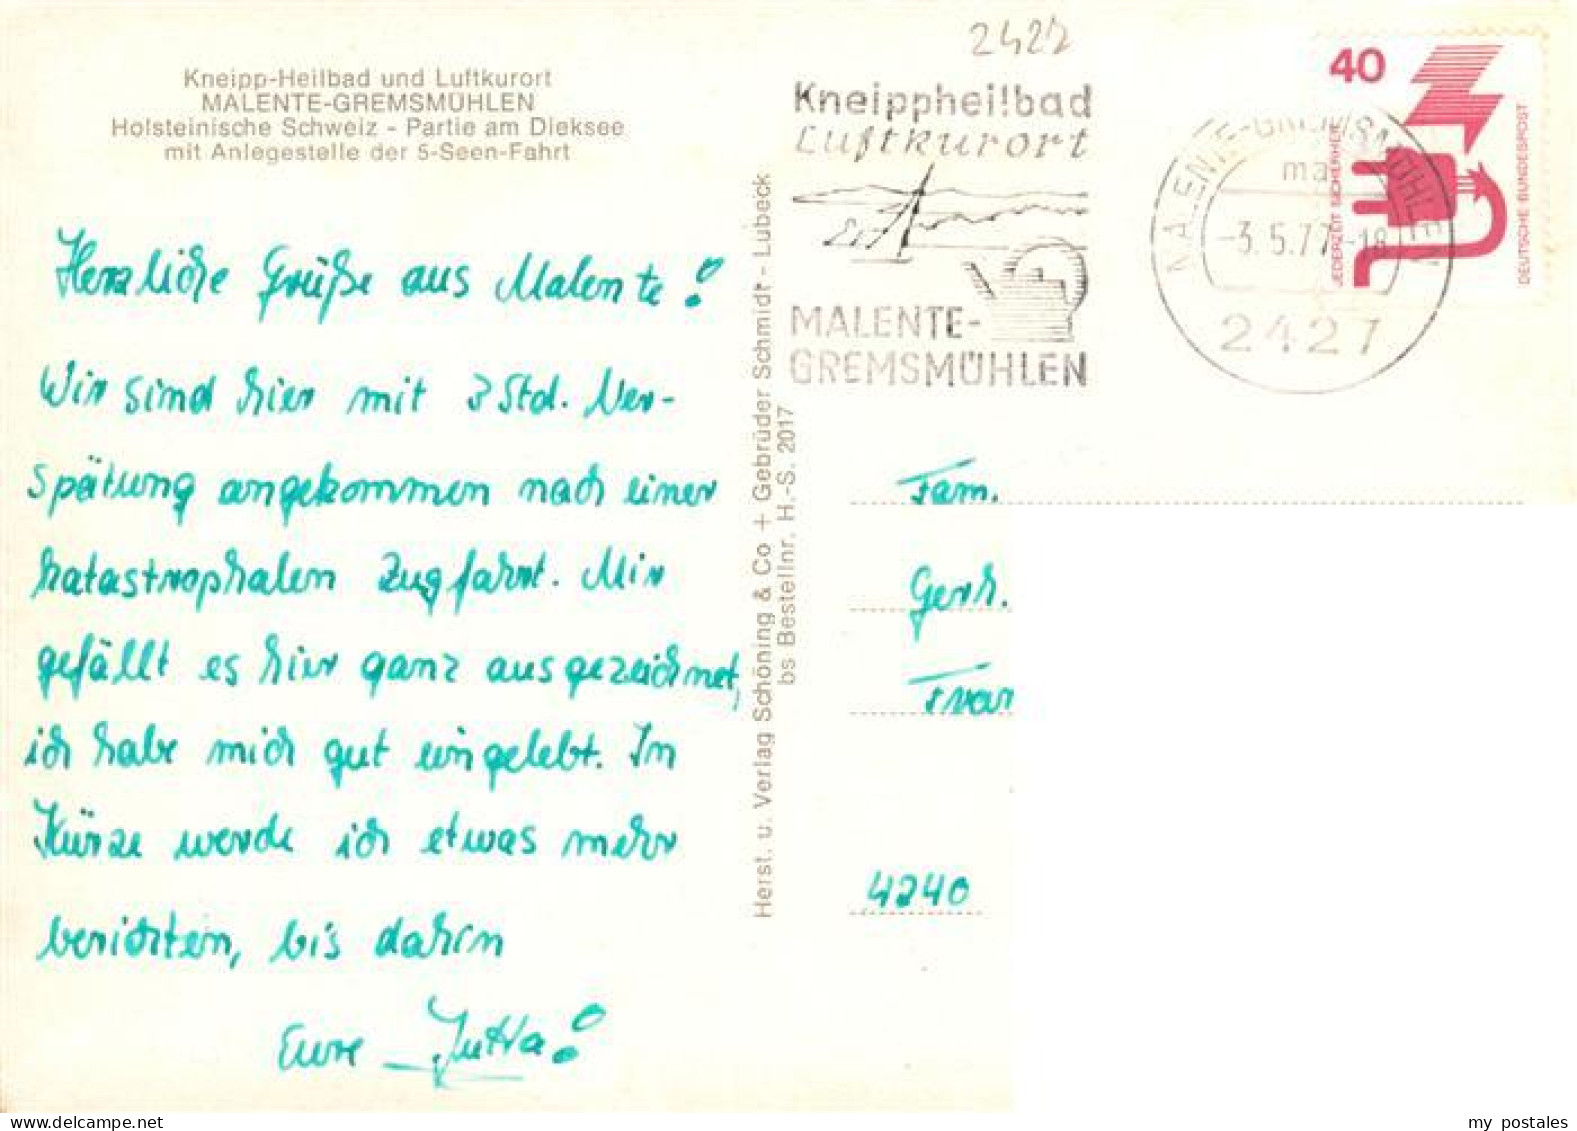 Kneipp-Heilbad und Luftkurort
MALENTE-GREMSMÜHLEN
Holsteinische Schweiz - Partie am Dieksee
mit Anlegestelle der 5-Seen-Fahrt
Herzliche Grüße aus Malente!
Wir sind hier mit 3 Std. Ver-
spätung angekommen nach einer
katastrophalen Zugfahrt. Mir
gefällt es hier ganz ausgezeichnet,
ich habe mich gut eingelebt. In
Kürze werde ich etwas mehr
berichten, bis dahin
Eure Jutta!
Herst. u. Verlag Schöning & Co + Gebrüder Schmidt - Lübeck
bs Bestellnr. H.-S. 2017
2427
Kneippheilbad
Luftkurort
MALENTE-
GREMSMÜHLEN
MALENTE-GREMSMÜHLEN
ma
-3.5.77-18
2427
40
JEDERZEIT SICHERHEIT
DEUTSCHE BUNDESPOST
Fam.
Gerh.
4240
my postales